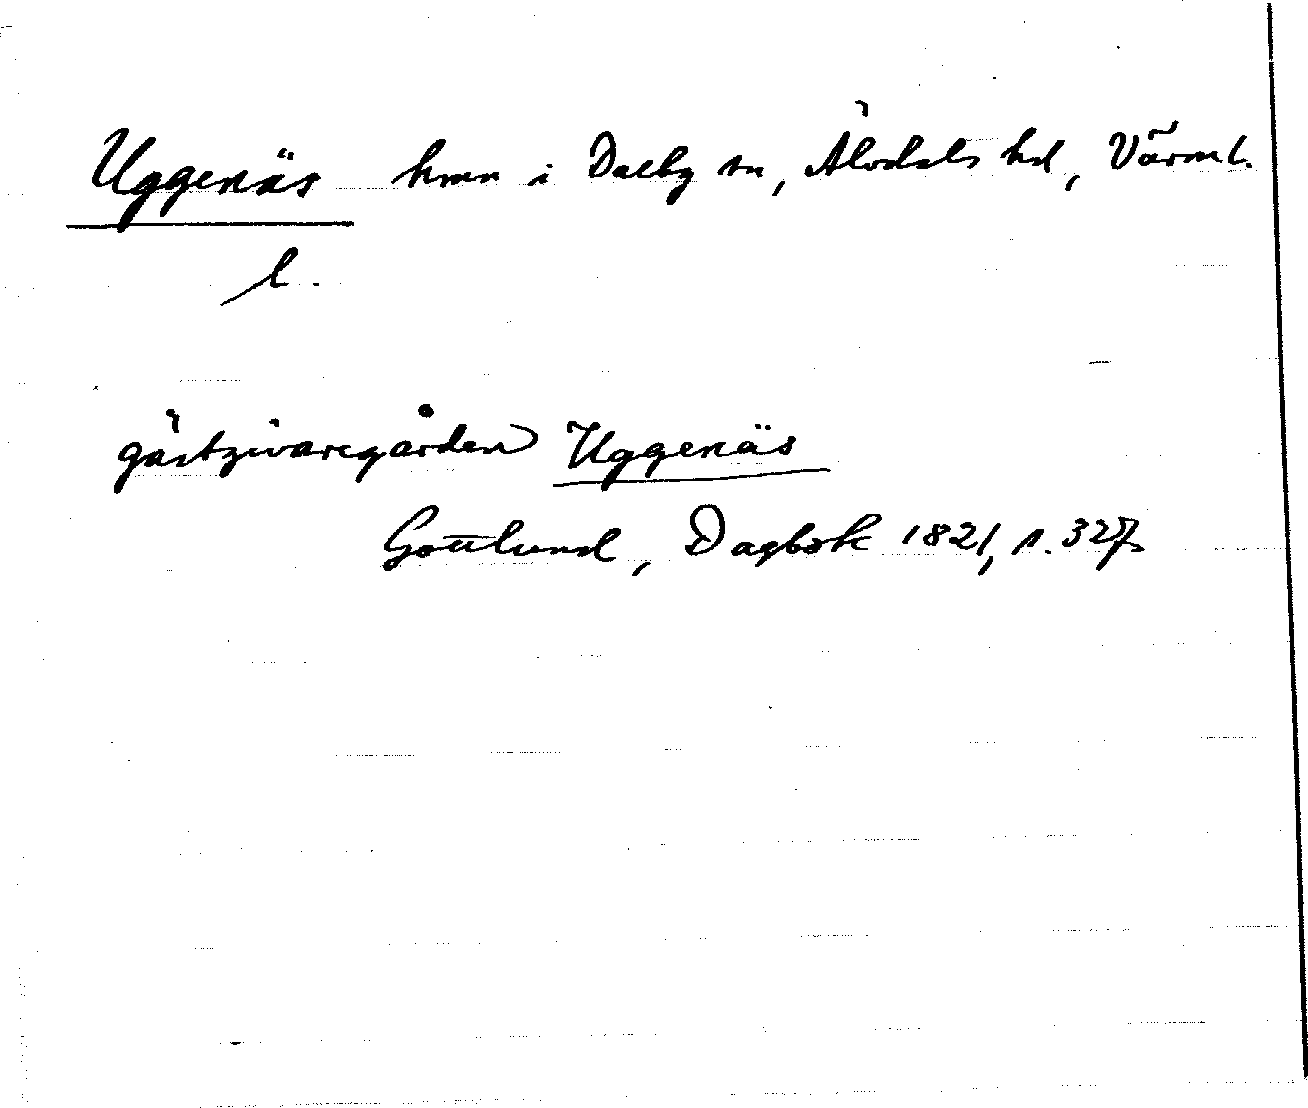 Uggenäs hmn i Dalby sn, Älvdals hd, Värml.
l.
gästgivaregården Uggenäs
Gottlund, Dagbok 1821, s. 327